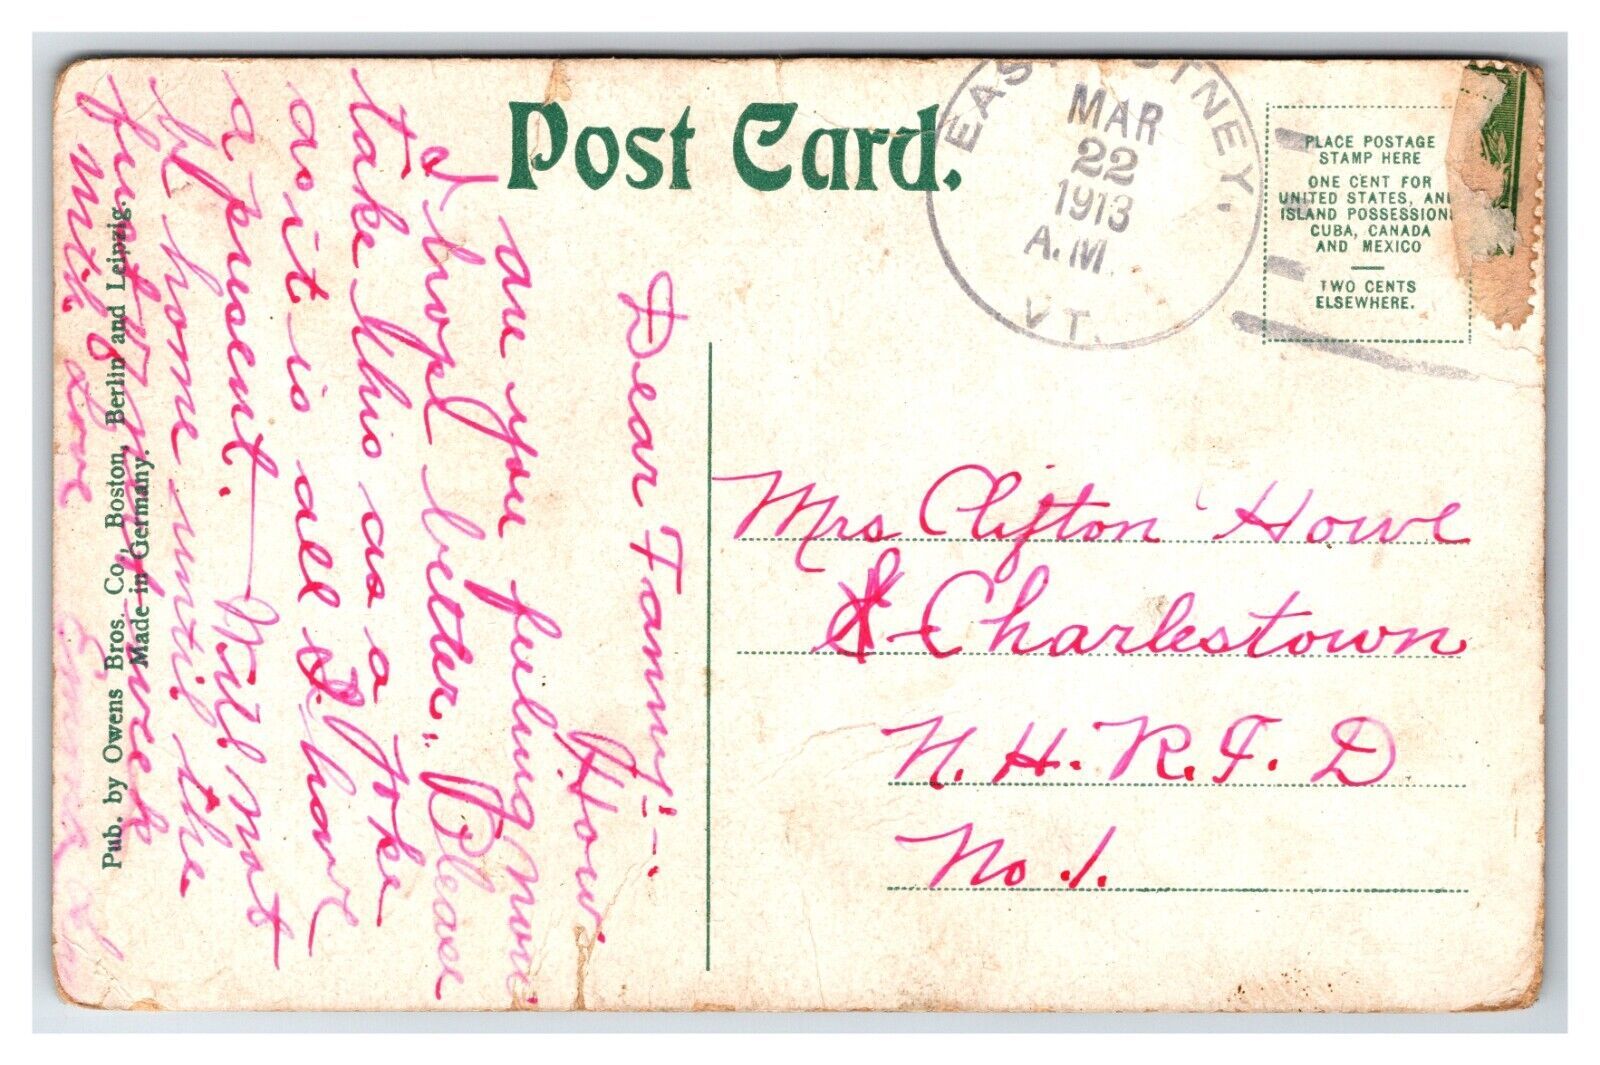 Post Card.
EAST
TNEY,
MAR
22
1913
A.M.
VT.
PLACE POSTAGE
STAMP HERE
ONE CENT FOR
UNITED STATES, AN
ISLAND POSSESSION
CUBA, CANADA
AND MEXICO
TWO CENTS
ELSEWHERE.
Mrs Clifton Howe
Charlestown
N.H. R.F.D
No. 1.
Dear Fanny:-
How
are you feeling now
I hope better. Please
take this as a joke
as it is all I have
a present. Will not
be home until the
first
With Love
Pub. by Owens Bros. Co., Boston, Berlin and Leipzig.
Made in Germany.